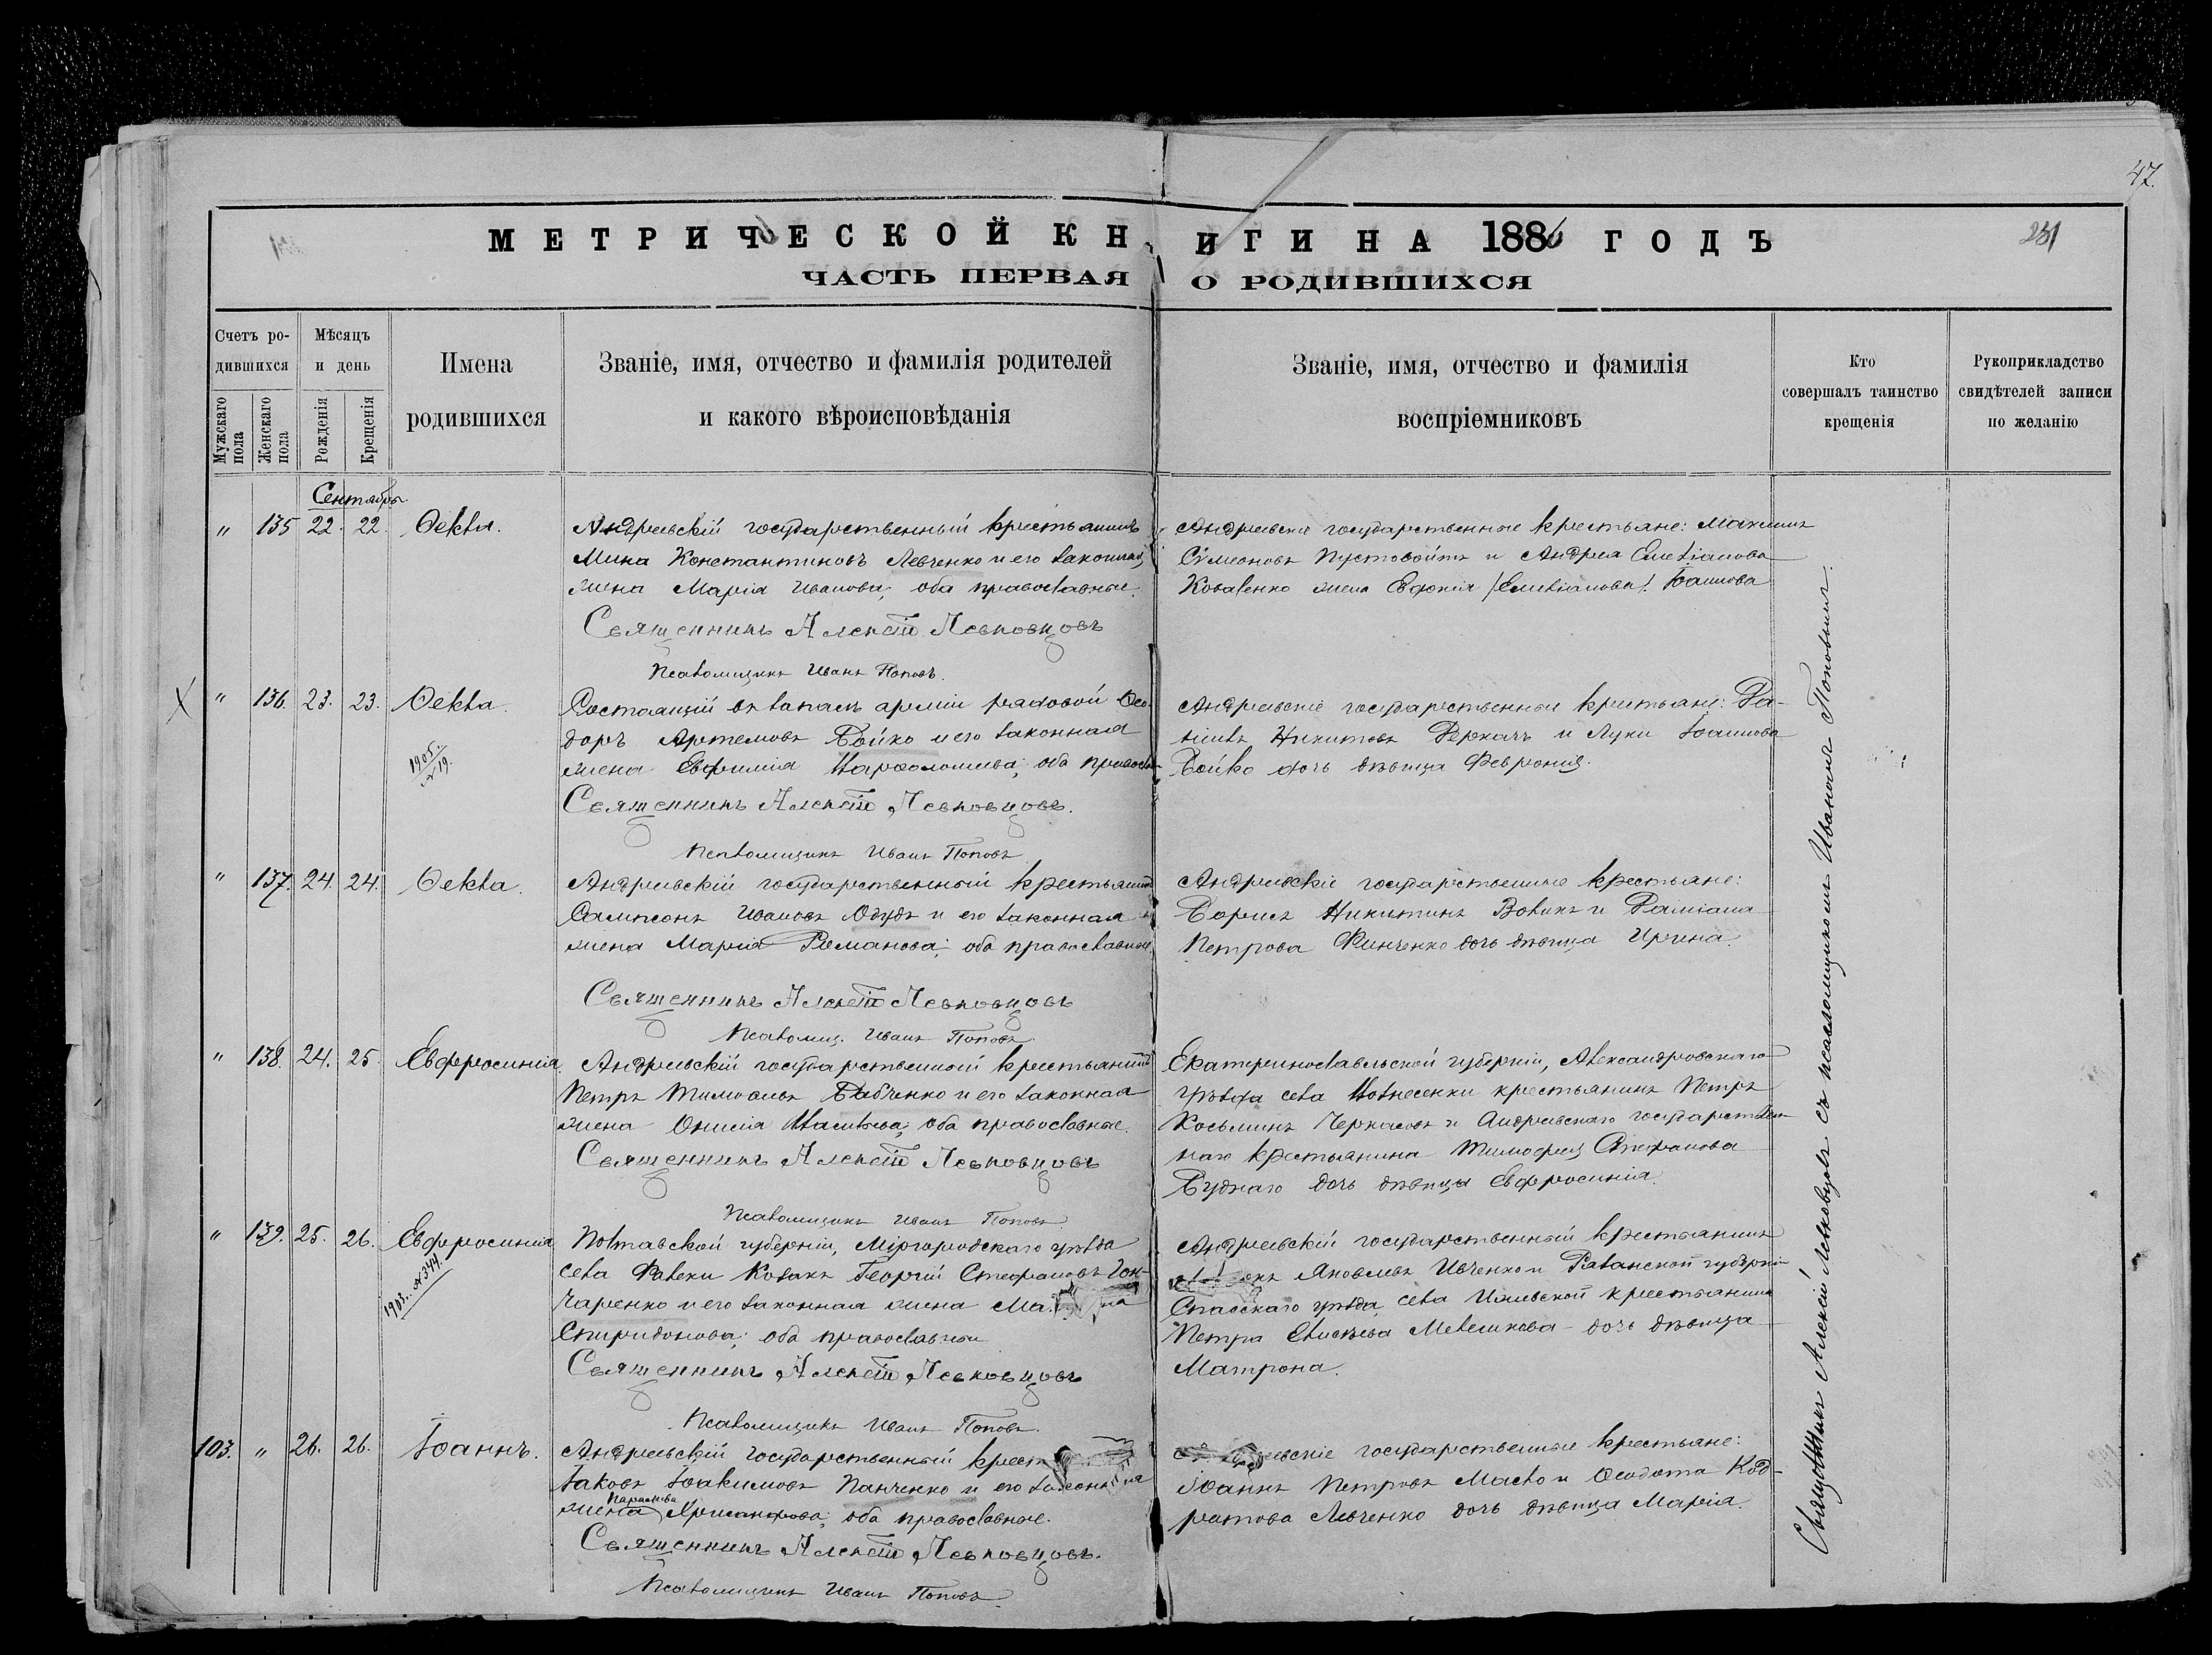 47.
МЕТРИЧЕСКОЙ КНИГИ НА 1886 ГОДЪ
231
ЧАСТЬ ПЕРВАЯ О РОДИВШИХСЯ
Счетъ ро-
дившихся
Мужскаго пола
Женскаго пола
Мѣсяцъ
и день
Рожденія
Крещенія
Имена
родившихся
Званіе, имя, отчество и фамилія родителей
и какого вѣроисповѣданія
Званіе, имя, отчество и фамилія
воспріемниковъ
Кто
совершалъ таинство
крещенія
Рукоприкладство
свидѣтелей записи
по желанію
Сентябрь
" 135 22. 22. Ѳекла.
Андреевскій государственный крестьянинъ
Мина Константиновъ Левченко и его законная
жена Марія Иванова; оба православные.
Священникъ Алексій Левковцовъ
Псаломщикъ Иванъ Поповъ.
Андреевскіе государственные крестьяне: Максимъ
Сѵмеоновъ Пустовойтъ и Андрея Емельянова
Коваленко жена Евдокія /Емельянова/. Іоаннова
" 136. 23. 23. Ѳекла.
1905. № 19.
Состоящій въ запасѣ арміи рядовой Ѳео-
доръ Артемовъ Бойко и его законная
жена Евфимія Варфоломеева; оба православ
Священникъ Алексій Левковцовъ.
Псаломщикъ Иванъ Поповъ
Андреевскіе государственные крестьяне: Да-
ніилъ Никитовъ Деркачъ и Луки Іоаннова
Бойко дочь дѣвица Февронія.
" 137. 24. 24. Ѳекла.
Андреевскій государственный крестьянинъ
Сампсонъ Ивановъ Одудъ и его законная
жена Марія Романова; оба православные.
Священникъ Алексій Левковцовъ
Псаломщ. Иванъ Поповъ
Андреевскіе государственные крестьяне:
Борисъ Никитинъ Вовкъ и Даміана
Петрова Финченко дочь дѣвица Ирина.
" 138. 24. 25. Евфросинія.
Андреевскій государственный крестьянинъ
Петръ Тимоѳеевъ Бабченко и его законная
жена Онисія Васильева; оба православные.
Священникъ Алексій Левковцовъ
Псаломщикъ Иванъ Поповъ
Екатеринославльской губерніи, Александровскаго
уѣзда села Вознесенки крестьянинъ Петръ
Косьминъ Черкасовъ и Андреевскаго государствен
наго крестьянина Тимофея Стефанова
Буднаго дочь дѣвица Евфросинія.
" 139. 25. 26. Евфросинія
1903. № 344.
Полтавской губерніи, Миргородскаго уѣзда
села Фалеки Козакъ Георгій Стефановъ Гон-
чаренко и его законная жена
Спиридонова; оба православные
Священникъ Алексій Левковцовъ
Псаломщикъ Иванъ Поповъ.
Андреевскій государственный крестьянинъ
Яковлевъ Ивченко и Рязанской губерніи
Спасскаго уѣзда, села Ижевской крестьянина
Петра Елисѣева Мелешкова дочь дѣвица
Матрона.
103. " 26. 26. Іоаннъ.
Андреевскій государственный крест
Іаковъ Іоакимовъ Панченко и его законная
жена Хрисанфова; оба православные.
Священникъ Алексій Левковцовъ.
Псаломщикъ Иванъ Поповъ.
государственные крестьяне:
Іоаннъ Петровъ Масло и Ѳеодота Код-
ратова Левченко дочь дѣвица Марія.
Священникъ Алексій Левковцовъ съ псаломщикомъ Иваномъ Поповымъ.